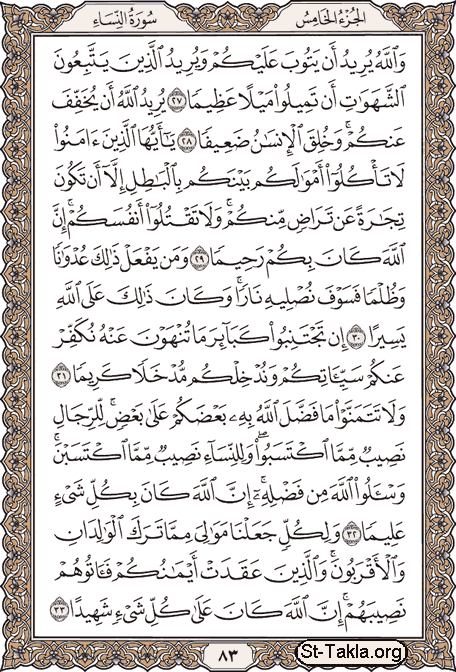 الجزء الخامس سورة النساء
وَٱللَّهُ يُرِيدُ أَن يَتُوبَ عَلَيْكُمْ وَيُرِيدُ ٱلَّذِينَ يَتَّبِعُونَ
ٱلشَّهَوَٰتِ أَن تَمِيلُوا۟ مَيْلًا عَظِيمًا ٢٧ يُرِيدُ ٱللَّهُ أَن يُخَفِّفَ
عَنكُمْ ۚ وَخُلِقَ ٱلْإِنسَٰنُ ضَعِيفًا ٢٨ يَٰٓأَيُّهَا ٱلَّذِينَ ءَامَنُوا۟
لَا تَأْكُلُوٓا۟ أَمْوَٰلَكُم بَيْنَكُم بِٱلْبَٰطِلِ إِلَّآ أَن تَكُونَ
تِجَٰرَةً عَن تَرَاضٍ مِّنكُمْ ۚ وَلَا تَقْتُلُوٓا۟ أَنفُسَكُمْ ۚ إِنَّ
ٱللَّهَ كَانَ بِكُمْ رَحِيمًا ٢٩ وَمَن يَفْعَلْ ذَٰلِكَ عُدْوَٰنًا
وَظُلْمًا فَسَوْفَ نُصْلِيهِ نَارًا ۚ وَكَانَ ذَٰلِكَ عَلَى ٱللَّهِ
يَسِيرًا ٣٠ إِن تَجْتَنِبُوا۟ كَبَآئِرَ مَا تُنْهَوْنَ عَنْهُ نُكَفِّرْ
عَنكُمْ سَيِّـَٔاتِكُمْ وَنُدْخِلْكُم مُّدْخَلًا كَرِيمًا ٣١
وَلَا تَتَمَنَّوْا۟ مَا فَضَّلَ ٱللَّهُ بِهِۦ بَعْضَكُمْ عَلَىٰ بَعْضٍ ۚ لِّلرِّجَالِ
نَصِيبٌ مِّمَّا ٱكْتَسَبُوا۟ ۖ وَلِلنِّسَآءِ نَصِيبٌ مِّمَّا ٱكْتَسَبْنَ ۚ
وَسْـَٔلُوا۟ ٱللَّهَ مِن فَضْلِهِۦٓ ۗ إِنَّ ٱللَّهَ كَانَ بِكُلِّ شَىْءٍ
عَلِيمًا ٣٢ وَلِكُلٍّ جَعَلْنَا مَوَٰلِىَ مِمَّا تَرَكَ ٱلْوَٰلِدَانِ
وَٱلْأَقْرَبُونَ ۚ وَٱلَّذِينَ عَقَدَتْ أَيْمَٰنُكُمْ فَـَٔاتُوهُمْ
نَصِيبَهُمْ ۚ إِنَّ ٱللَّهَ كَانَ عَلَىٰ كُلِّ شَىْءٍ شَهِيدًا ٣٣
٨٣
St-Takla.org